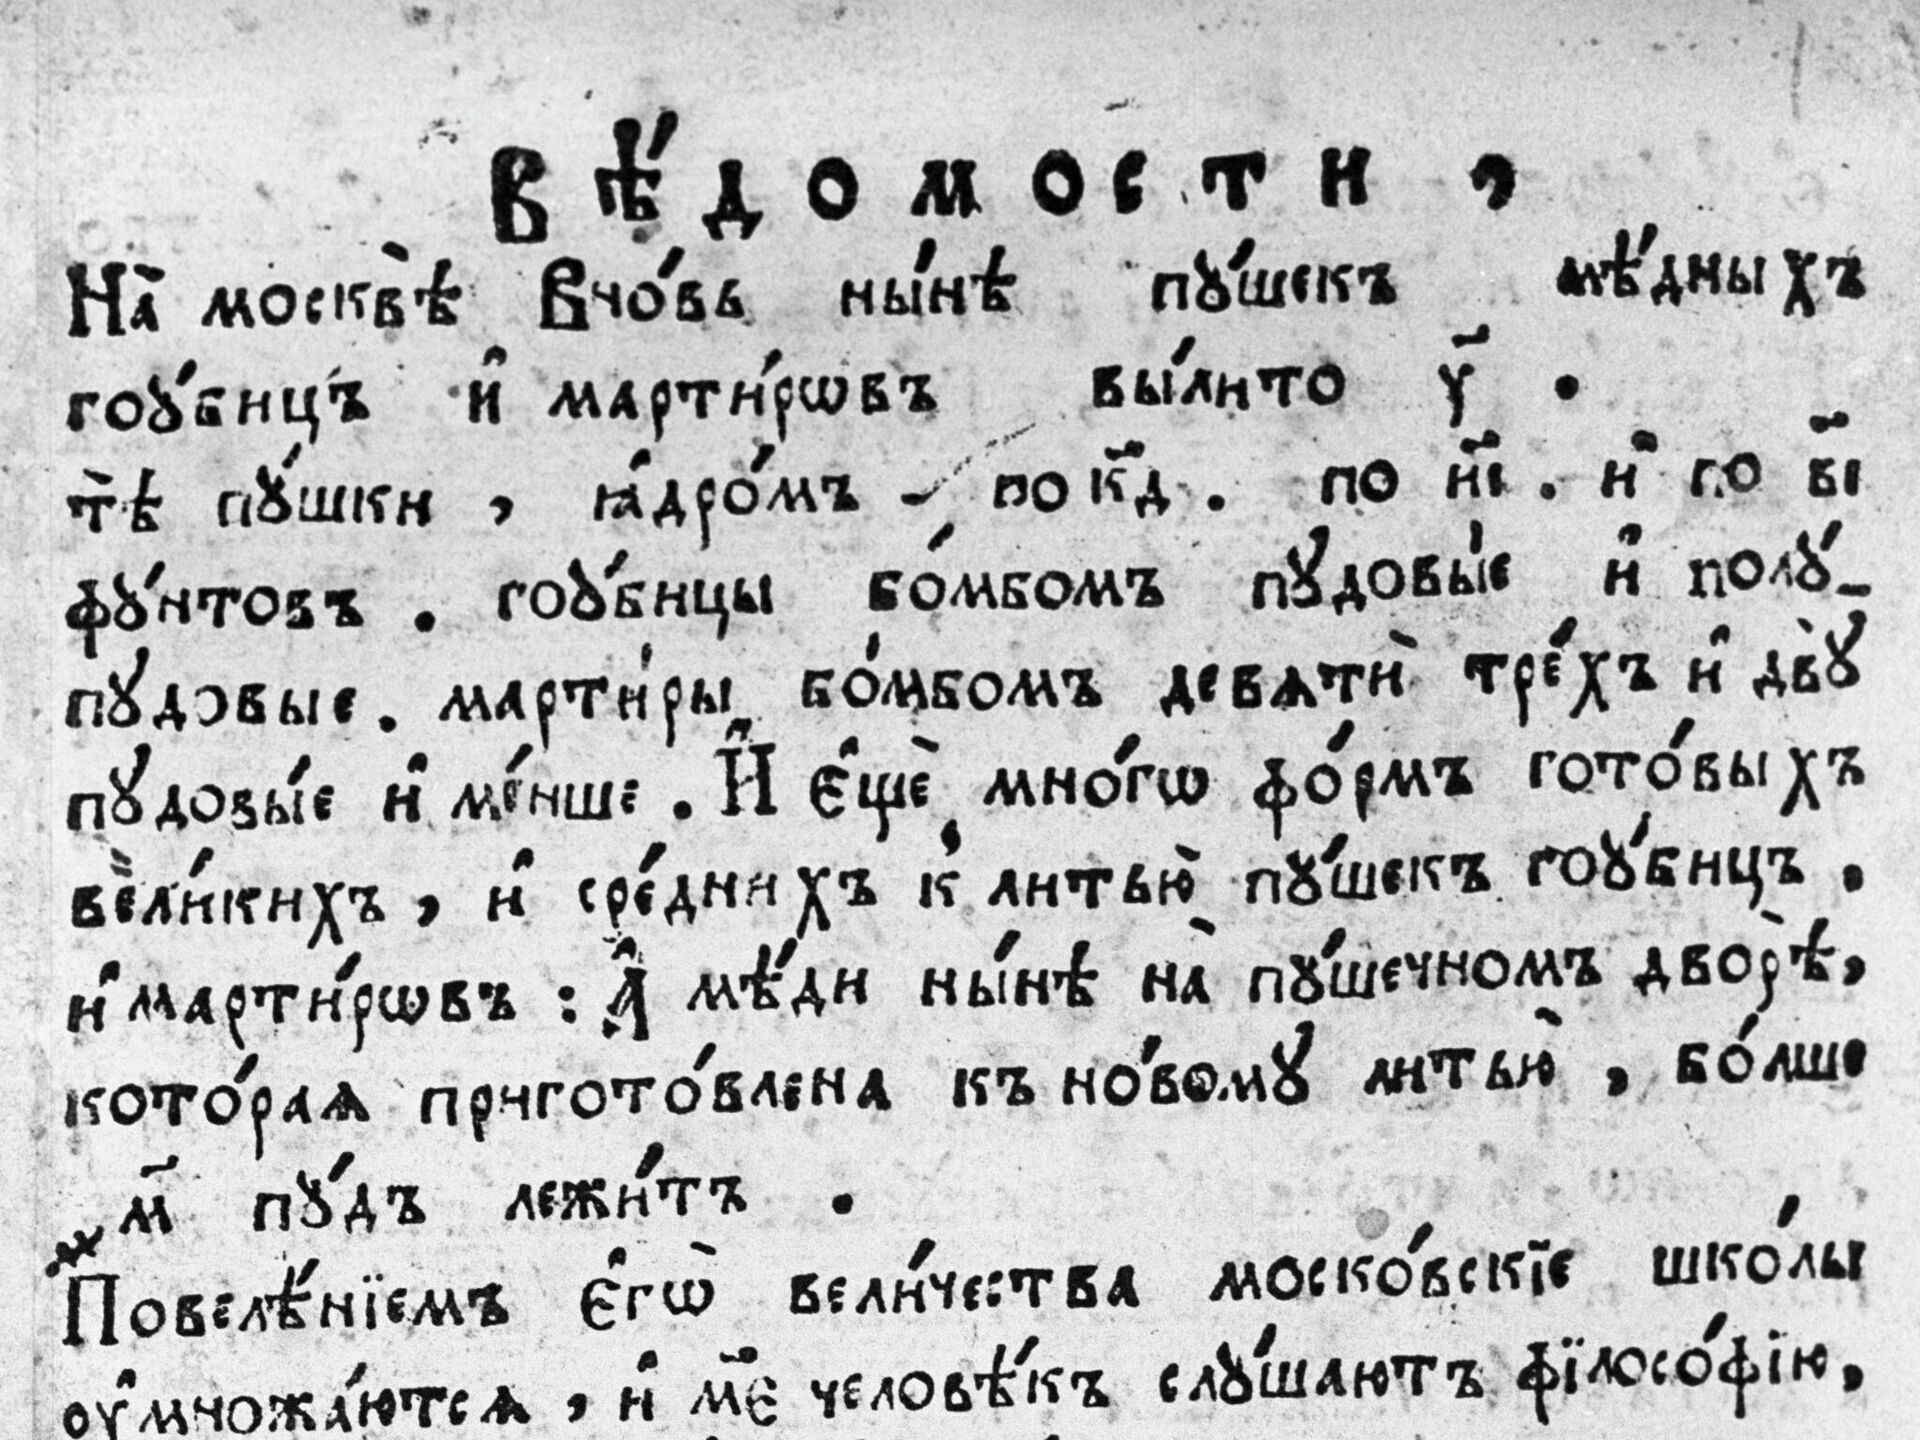 ВѢ́ДОМОСТИ,
На̀ москвѣ̀ Вно́вь ны́нѣ пꙋ́шекъ мѣ́дныхъ
гоꙋ́бицъ и҆ марти́рѡвъ вы́лито у҃ .
тѣ̀ пꙋ́шки, ꙗ҆дро́мъ - по к҃д . по н҃і . и҆ по в҃і
фꙋ́нтовъ . гоꙋ́бицы бо́мбомъ пꙋдовы́е и҆ полꙋ́-
пꙋдовые . марти́ры бо́мбомъ девѧтѝ тре́хъ и҆ двꙋ̀
пꙋдовы́е и҆ ме́нше . И҆ є҆щѐ мно́гѡ фо́рмъ гото́выхъ
вели́кихъ, и҆ сре́днихъ к̾ литью̀ пꙋ́шекъ гоꙋ́бицъ .
и҆ марти́рѡвъ : А҆ мѣ́ди ны́нѣ на̀ пꙋ́шечномъ дворѣ̀,
кото́раѧ пригото́влена къ но́вомꙋ литью̀, бо́лше
м҃ пꙋ́дъ лежи́тъ .
Повелѣ́нїемъ є҆гѡ̀ вели́чества моско́вскїе шко́лы
оу҆множа́ютсѧ, и҆ м҃е человѣ́къ слꙋ́шаютъ фїлосо́фїю,